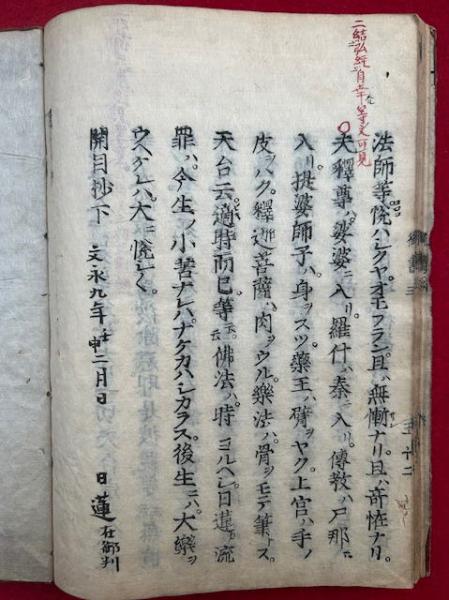 二結弘経自章等文可見
法師等悦ハシクヤオモフラン且ハ無慚ナリ。且ハ奇恠ナリ。
夫釋尊ハ娑婆ニ入リ。羅什ハ秦ニ入リ。傳教ハ尸那ニ
入リ。提婆師子ハ身ヲスツ藥王ハ臂ヲヤク上宮ハ手ノ
皮ヲハク。釋迦菩薩ハ肉ヲウル。樂法ハ骨ヲモテ筆トス。
天台云適時而已等云云佛法ハ時ニヨルヘシ日蓮カ流
罪ハ今生ノ小苦ナレハナケカハシカラス後生ニハ大樂ヲ
ウクヘケレハ大ニ悦シ。
開目抄下 文永九年壬申二月日 日蓮在御判